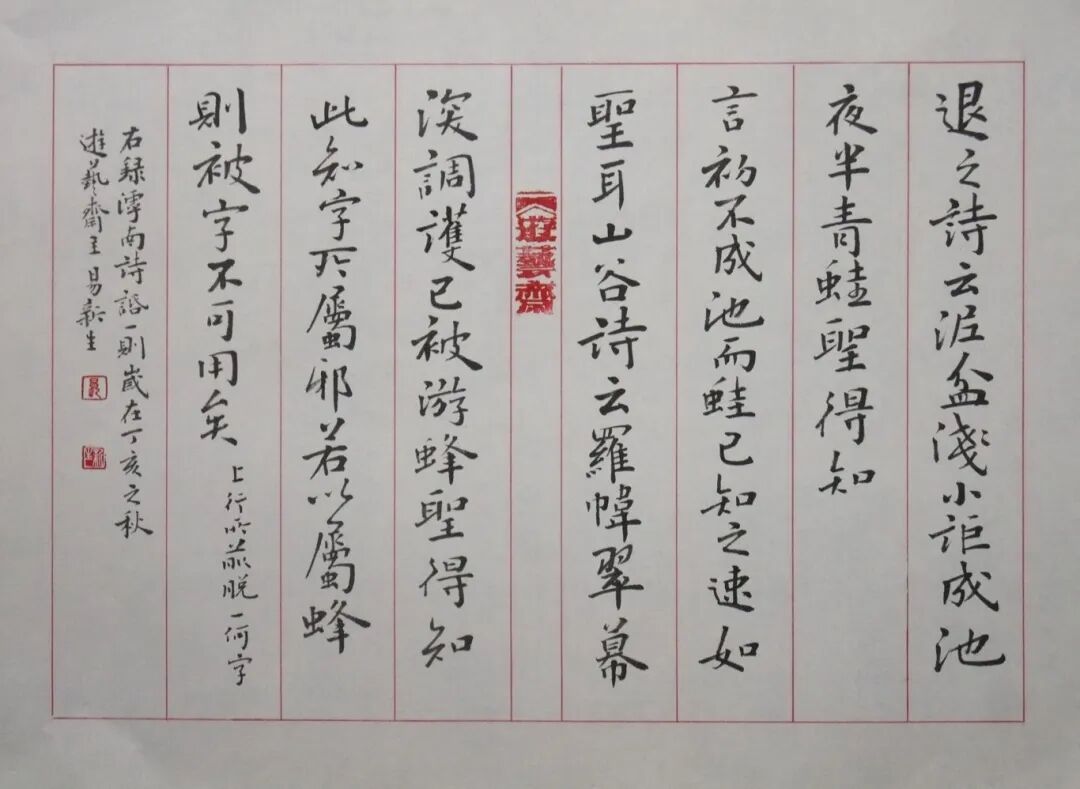 退之詩云泥盆淺小詎成池
夜半青蛙聖得知
言初不成池而蛙已知之速如
聖耳山谷詩云羅幃翠幕
遊藝齋
深調護已被游蜂聖得知
此知字所屬邪若以屬蜂
則被字不可用矣
上行所前脱一何字
右録滹南詩話一則歲在丁亥之秋
遊藝齋主易新生